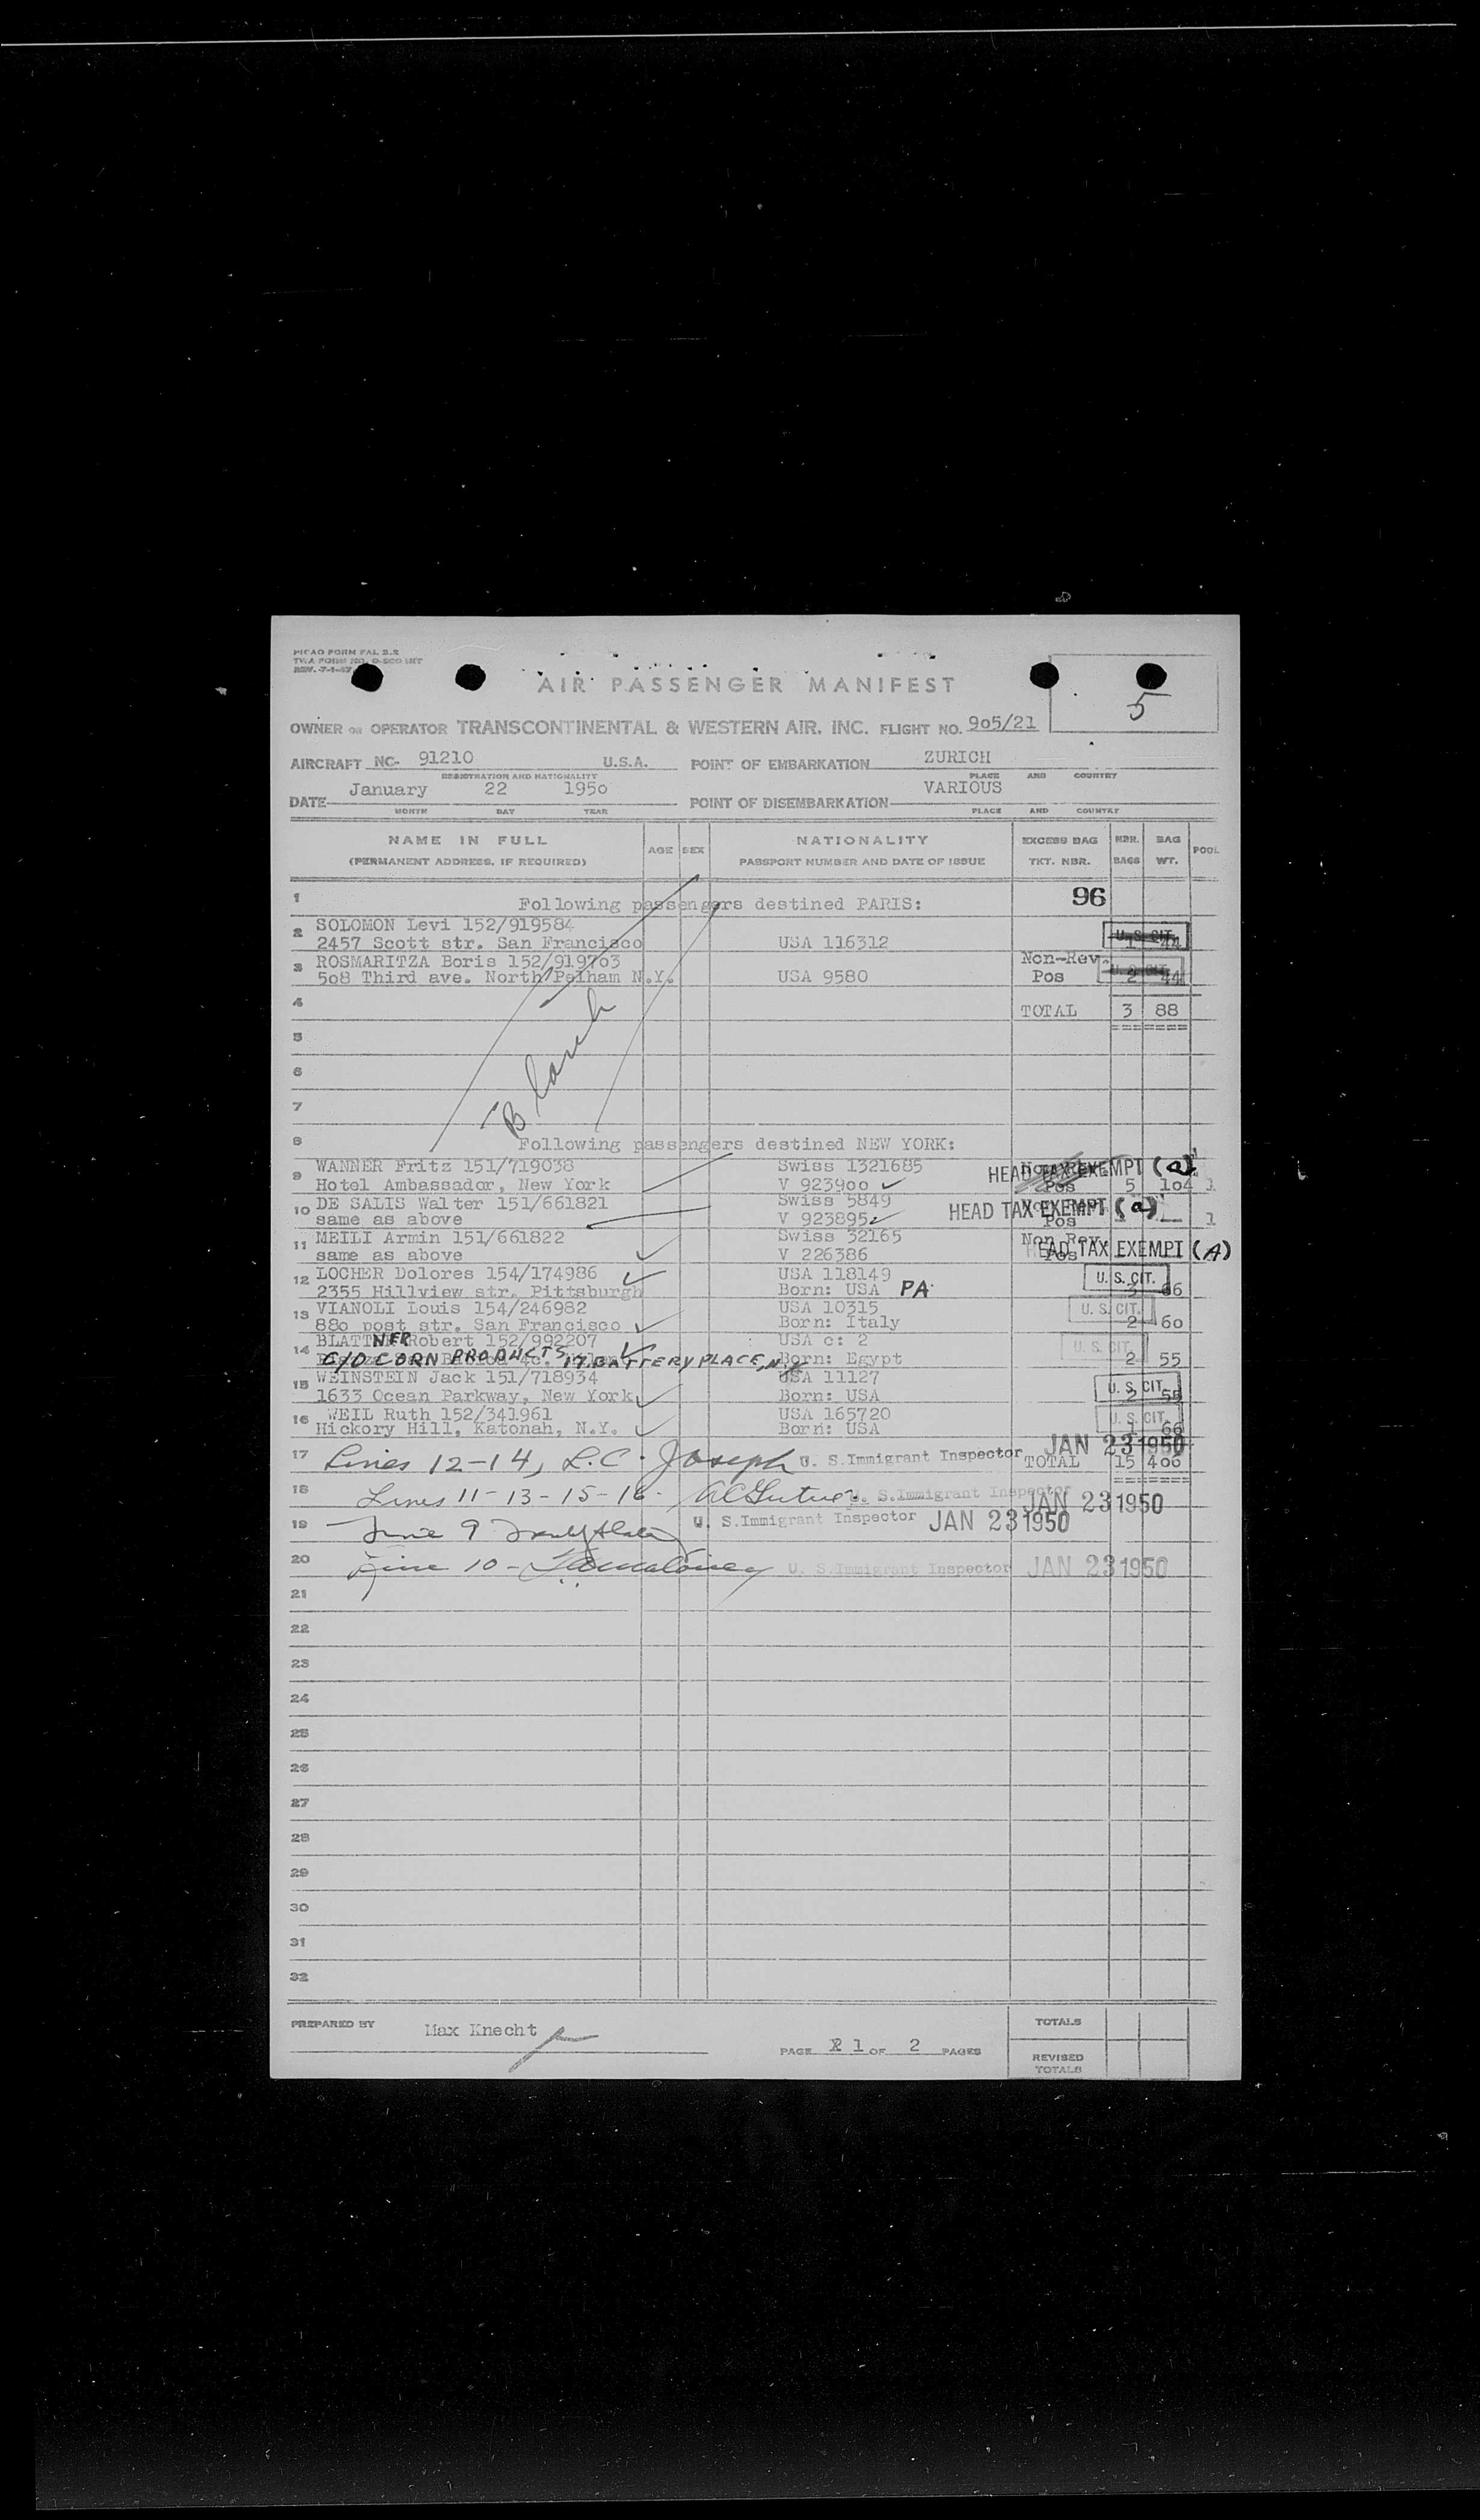 PICAO FORM FAL 2.2
TWA FORM NO. O-500 INT
REV. 7-1-47
AIR PASSENGER MANIFEST
5
OWNER OR OPERATOR TRANSCONTINENTAL & WESTERN AIR, INC. FLIGHT NO. 905/21
AIRCRAFT NC- 91210 U.S.A. POINT OF EMBARKATION ZURICH
REGISTRATION AND NATIONALITY PLACE AND COUNTRY
DATE January 22 195o POINT OF DISEMBARKATION VARIOUS
MONTH DAY YEAR PLACE AND COUNTRY
NAME IN FULL AGE SEX NATIONALITY EXCESS BAG NBR. BAG POOL
(PERMANENT ADDRESS, IF REQUIRED) PASSPORT NUMBER AND DATE OF ISSUE TKT. NBR. BAGS WT.
1 96
Following passengers destined PARIS:
2 SOLOMON Levi 152/919584 U. S. CIT.
2457 Scott str. San Francisco USA 116312 1 44
3 ROSMARITZA Boris 152/919763 Non-Rev. U. S. CIT.
5o8 Third ave. North Pelham N.Y. USA 9580 Pos 2 44
4 TOTAL 3 88
5 =======
6
7
Blanch
8 Following passengers destined NEW YORK:
9 WANNER Fritz 151/719038 Swiss 1321685 HEAD TAX EXEMPT (a)
Hotel Ambassador, New York V 9239oo Pos 5 1o4 1
10 DE SALIS Walter 151/661821 Swiss 5849 HEAD TAX EXEMPT (a)
same as above V 923895 Pos 1
11 MEILI Armin 151/661822 Swiss 32165 Non Rev.
same as above V 226386 Pos HEAD TAX EXEMPT (A)
12 LOCHER Dolores 154/174986 USA 118149 U. S. CIT.
2355 Hillview str. Pittsburgh Born: USA PA. 66
13 VIANOLI Louis 154/246982 USA 10315 U. S. CIT.
88o post str. San Francisco Born: Italy 2 6o
14 BLATTNER Robert 152/992207 USA c: 2 U. S. CIT.
C/O CORN PRODUCTS, 17 BATTERY PLACE, N.Y. Born: Egypt 2 55
15 WEINSTEIN Jack 151/718934 USA 11127 U. S. CIT.
1633 Ocean Parkway, New York Born: USA 2 55
16 WEIL Ruth 152/341961 USA 165720 U. S. CIT.
Hickory Hill, Katonah, N.Y. Born: USA 66
17 Lines 12-14, L.C. Joseph U. S. Immigrant Inspector JAN 23 1950
TOTAL 15 4oo
=======
18 Lines 11-13-15-16. U. S. Immigrant Inspector JAN 23 1950
19 Line 9 U. S. Immigrant Inspector JAN 23 1950
20 Line 10- U. S. Immigrant Inspector JAN 23 1950
21
22
23
24
25
26
27
28
29
30
31
32
PREPARED BY Max Knecht TOTALS
PAGE 1 OF 2 PAGES REVISED
TOTALS